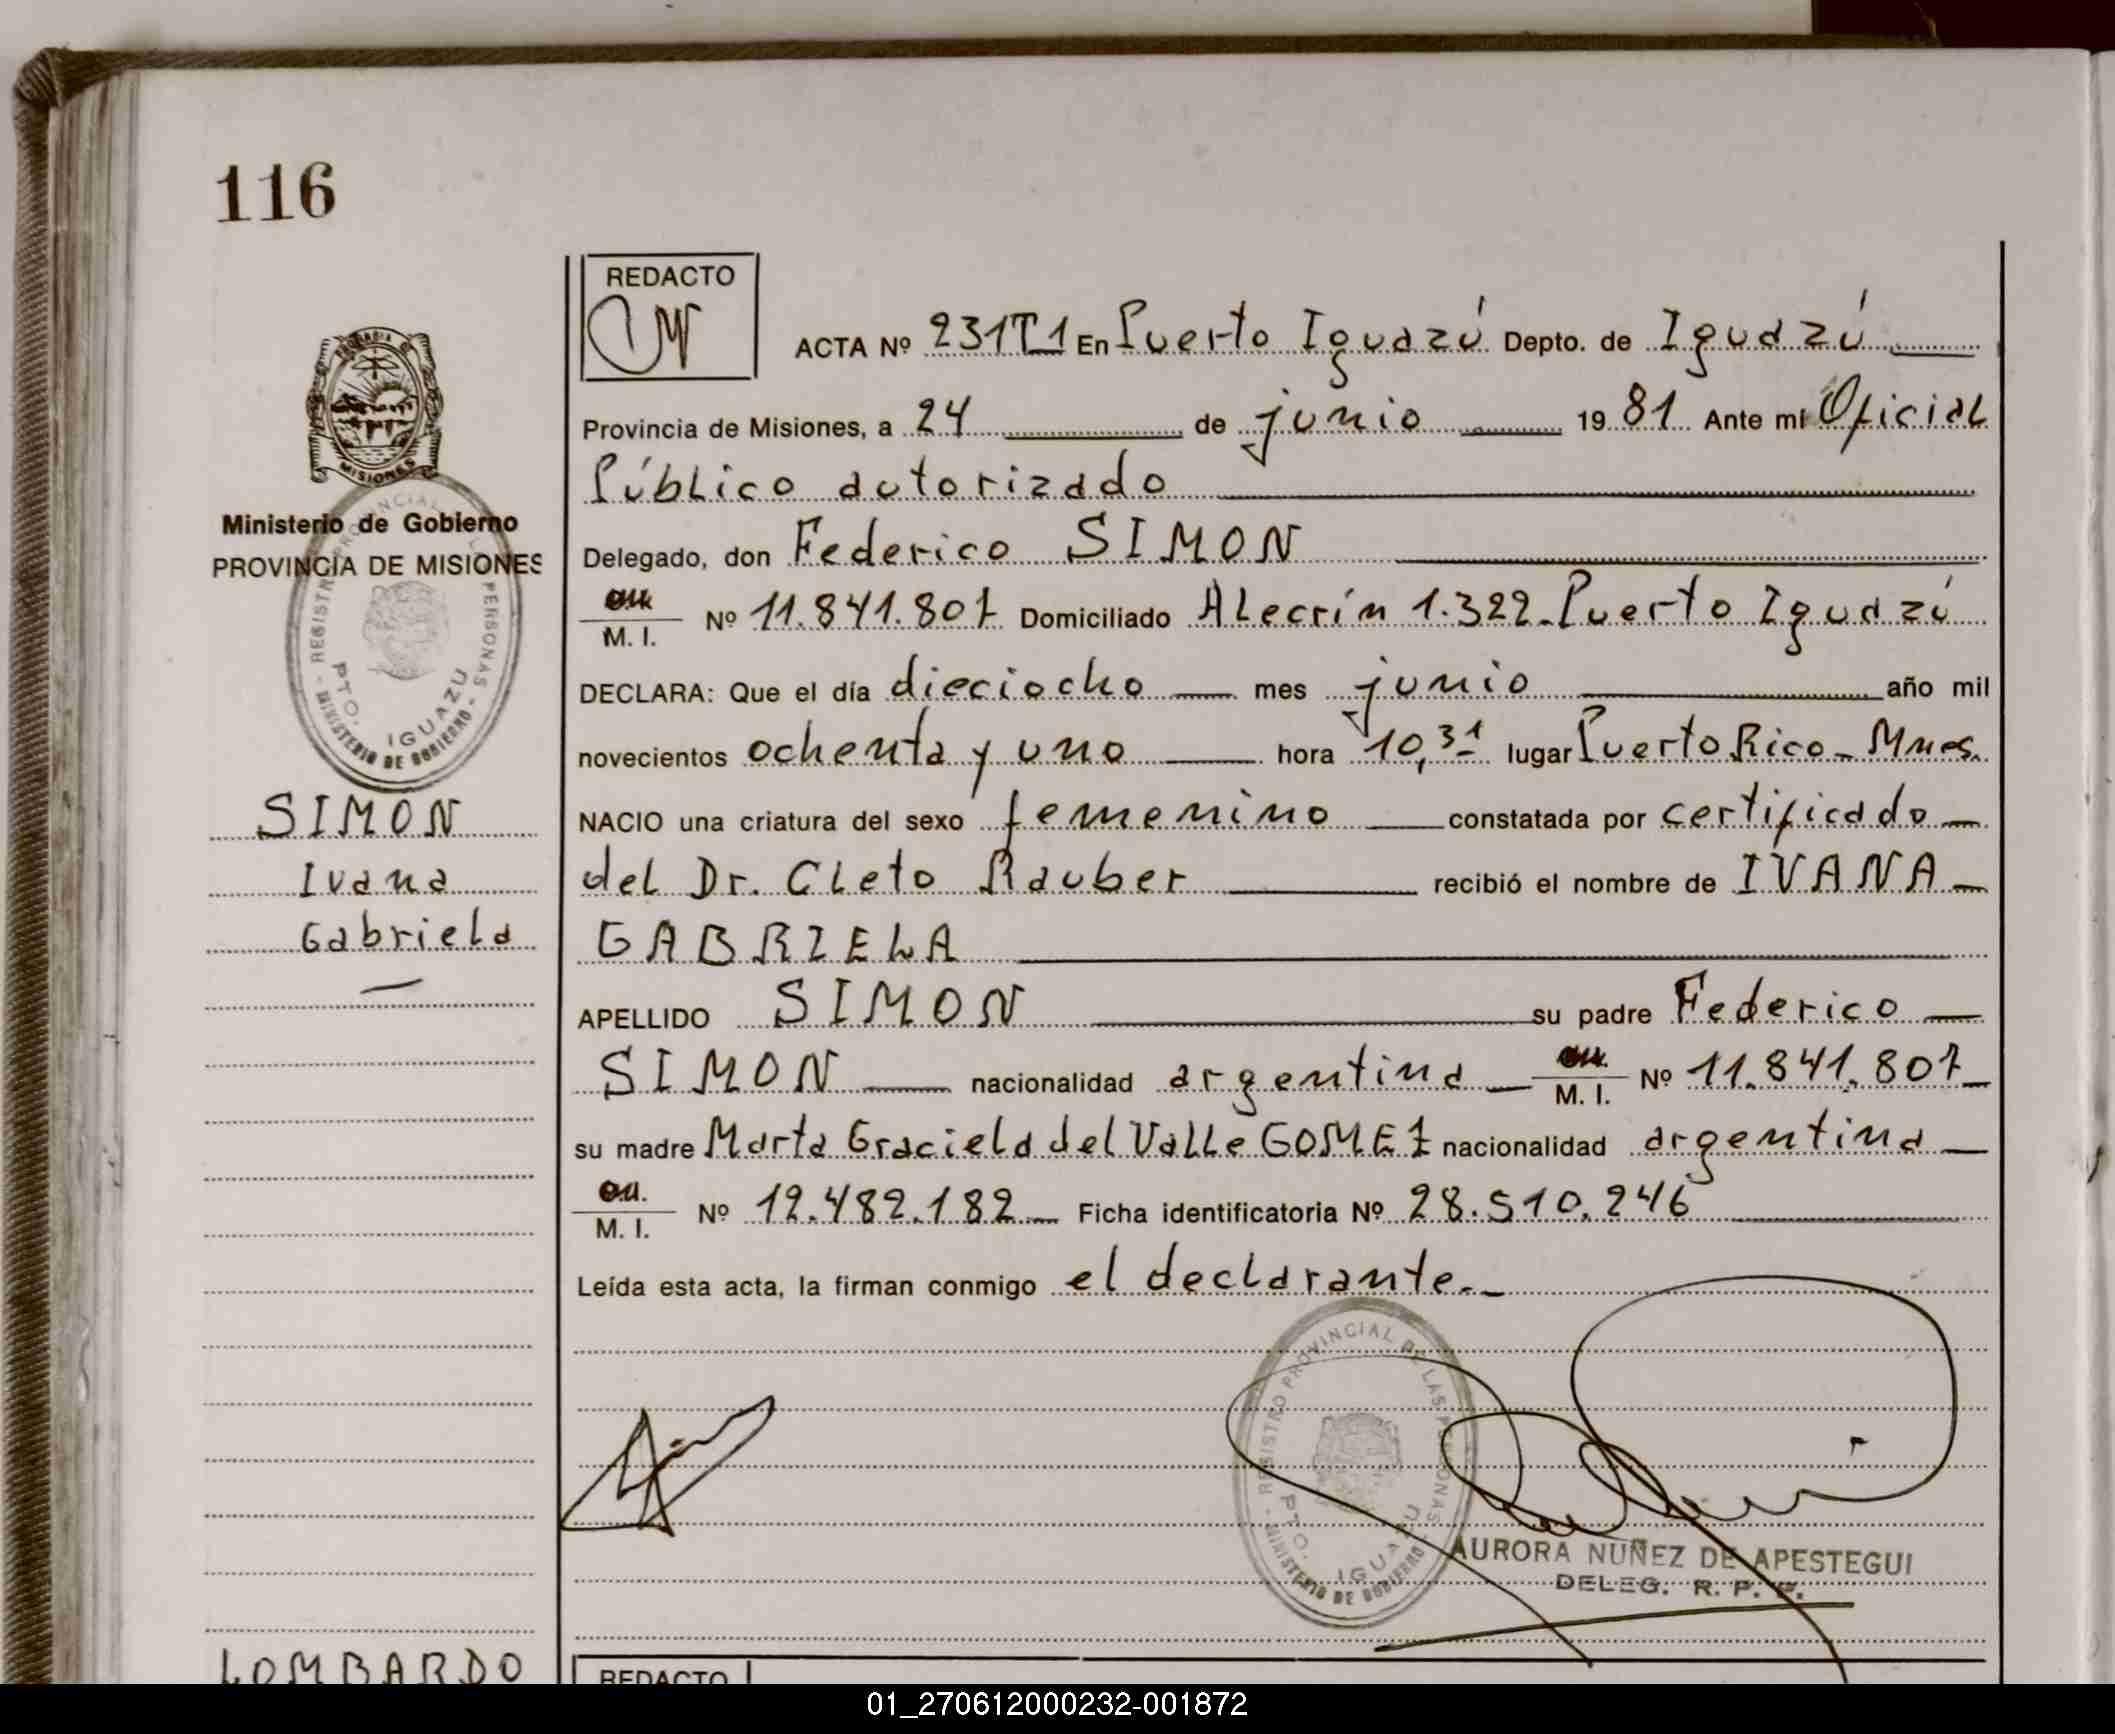 116
REDACTO
ACTA Nº 231T1 En Puerto Iguazú Depto. de Iguazú
Provincia de Misiones, a 24 de junio 1981 Ante mí Oficial
Público autorizado
Delegado, don Federico SIMON
M. I. Nº 11.841.807 Domiciliado Alecrín 1.322-Puerto Iguazú
DECLARA: Que el día dieciocho mes junio año mil
novecientos ochenta y uno hora 10,31 lugar Puerto Rico-Mnes.
NACIO una criatura del sexo femenino constatada por certificado
del Dr. Cleto Rauber recibió el nombre de IVANA
GABRIELA
APELLIDO SIMON su padre Federico
SIMON nacionalidad argentina M. I. Nº 11.841.807
su madre Marta Graciela del Valle GOMEZ nacionalidad argentina
M. I. Nº 12.482.182 Ficha identificatoria Nº 28.510.246
Leída esta acta, la firman conmigo el declarante.
PROVINCIA DE MISIONES
Ministerio de Gobierno
PROVINCIA DE MISIONES
REGISTRO PROVINCIAL DE LAS PERSONAS
PTO. IGUAZU
MINISTERIO DE GOBIERNO
SIMON
Ivana
Gabriela
REGISTRO PROVINCIAL DE LAS PERSONAS
PTO. IGUAZU
MINISTERIO DE GOBIERNO
AURORA NUÑEZ DE APESTEGUI
DELEG. R. P. P.
LOMBARDO
REDACTO
01_270612000232-001872